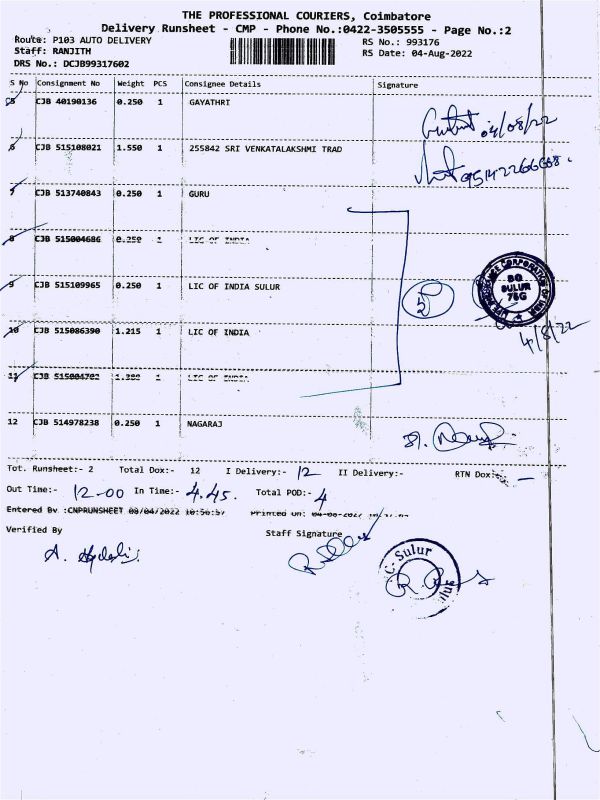 THE PROFESSIONAL COURIERS, Coimbatore
Delivery Runsheet - CMP - Phone No.:0422-3505555 - Page No.:2
Route: P103 AUTO DELIVERY RS No.: 993176
Staff: RANJITH RS Date: 04-Aug-2022
DRS No.: DCJB99317602
S No Consignment No Weight PCS Consignee Details Signature
5 CJB 40190136 0.250 1 GAYATHRI
04/08/22
6 CJB 515108021 1.550 1 255842 SRI VENKATALAKSHMI TRAD
7 CJB 513740843 0.250 1 GURU
8 CJB 515004686 0.250 1 LIC OF INDIA
9 CJB 515109965 0.250 1 LIC OF INDIA SULUR
5
LIFE INSURANCE CORPORATION OF INDIA
BO
SULUR
76G
10 CJB 515086390 1.215 1 LIC OF INDIA
4/8/22
11 CJB 1 LIC OF INDIA
12 CJB 514978238 0.250 1 NAGARAJ
Tot. Runsheet:- 2 Total Dox:- 12 I Delivery:- 12 II Delivery:- RTN Dox:- —
Out Time:- 12-00 In Time:- 4.45. Total POD:- 4
Entered By :CNPRUNSHEET 08/04/2022 10:56:57 Printed On:
Verified By Staff Signature
Sulur